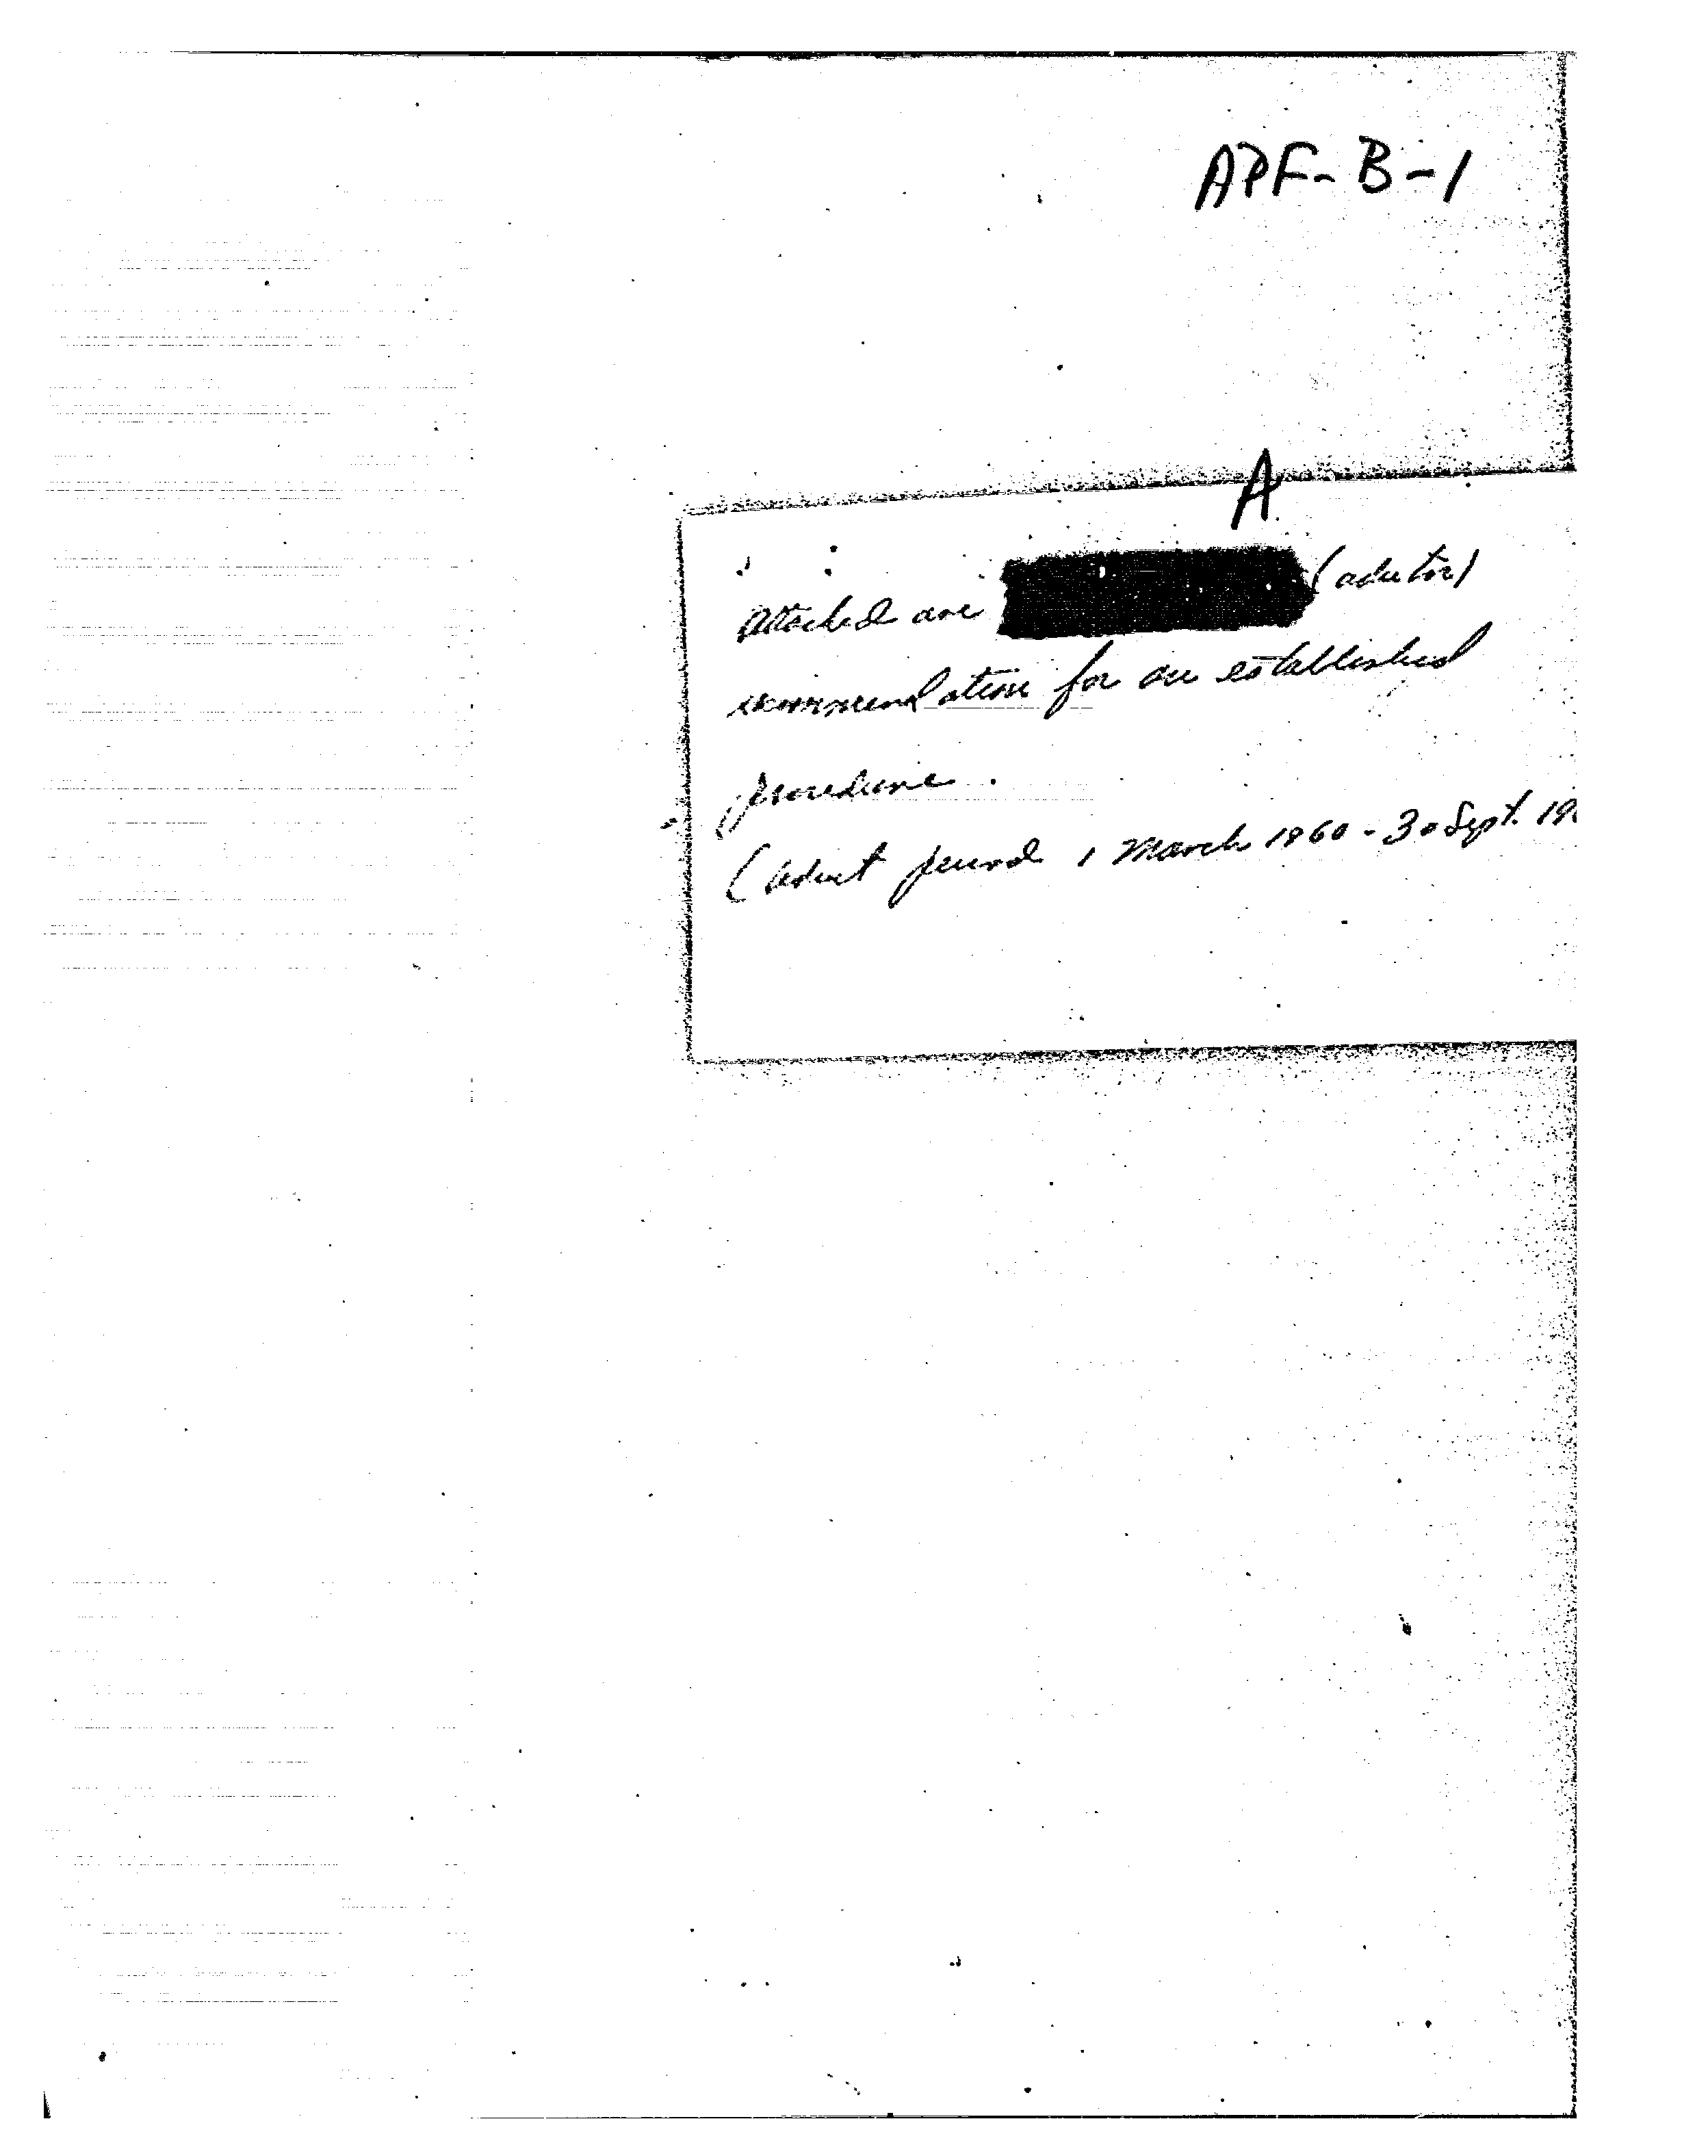 APF-B-1
A
Attached are (auditor)
recommendation for an established
procedure.
(Audit period 1 March 1960 - 30 Sept. 19